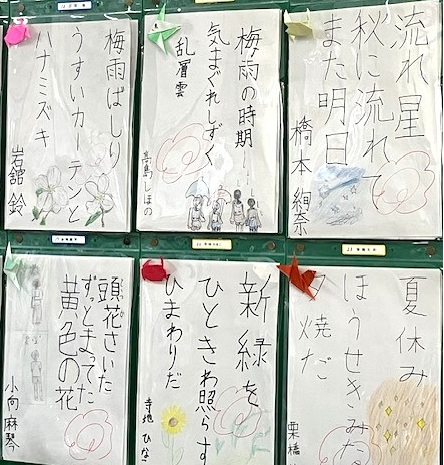 流れ星
秋に流れて
また明日
橋本 絢奈
梅雨の時期
気まぐれしずく
乱層雲
高島しほの
梅雨ばしり
うすいカーテンと
ハナミズキ
岩舘 鈴
夏休み
ほうせきみた
夕焼だ
栗橋
新緑を
ひときわ照らす
ひまわりだ
寺地 ひな
頭花さいた
ずっとまってた
黄色の花
小向麻琴